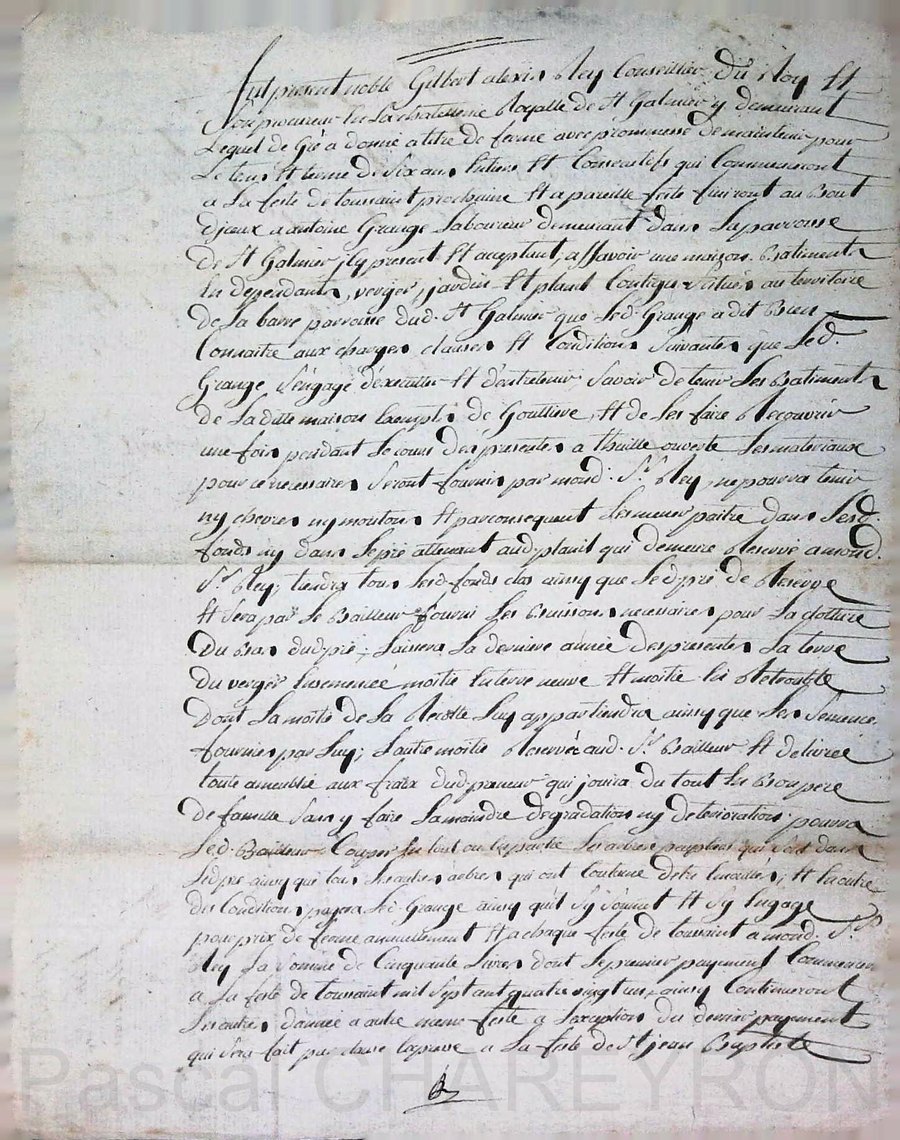 fut present noble Gilbert alexis Rey Conseillier Du Roy Et
Son procureur En La chatellenie Royalle de St Galmier y demeurant
Lequel de Gré a donné a titre de ferme avec prommesse de maintenir pour
Le tems Et terme de Six ans Entiers Et Consecutifs qui Commenceront
a La feste de toussaint prochaine Et a pareille feste finiront au Bout
d'jceux a antoine Grange Laboureur demeurant dans La parroisse
de St Galmier jcy present Et acceptant, assavoir une maison Batiments
En dependants, verger, jardin Et plant Contigus Situés au territoire
de La barre parroisse dud. St Galmier que Led. Grange a dit Bien
Connaitre aux charges clauses Et Conditions Suivantes que Led.
Grange S'engage d'executter Et d'entretenir Savoir de tenir Les Batiments
de La ditte maison Exempts de Gouttiere, Et de Les faire Recouvrir
une fois pendant Le cours des presentes a thuille ouverte Les materiaux
pour ce necessaires Seront fournis par mond. Sr. Rey, ne pourra tenir
ny chevres ny moutons Et par consequent Les mener paitre dans Lesd.
fonds ny dans Le pré attenant aud plant qui demeure Reservé a mond.
Sr Rey; tiendra tous Lesd. fonds clos ainsy que Led. pré de Reserve
Et Sera par Le Bailleur fourni Les Buissons necessaires pour La clotture
Du Bas dud pré; Laissera La derniere année des presentes La terre
du verger Ensemencée moitie En terre neuve Et moitie En Retrouble
Dont La moitié de La Recolte Luy appartiendra ainsy que Les Semences
fournies par Luy; L'autre moitié Reservée aud. Sr Bailleur Et delivrée
toute ameublie aux fraix dud preneur qui jouira du tout En Bon pere
de famille Sans y faire La moindre degradation ny deterioration pourra
Led. Bailleur Couper En tout ou En partie Les arbres peupliers qui Sont dans
Led pré ainsy que tous Les autres arbres qui ont Coutume d'etre Emondés; Et En outre
des Conditions payera Led. Grange ainsy qu'il S'y Soumet Et S'y Engage
pour prix de ferme annuellement Et a chaque feste de toussaint a mond. Sr.
Rey La Somme de Cinquante Livres dont Le premier payement Commencera
a La feste de toussaint mil Sept cent quatre vingt un, ainsy Continueront
Les autres d'année a autre meme feste a L'exception du dernier payement
qui Sera fait par davance a La feste de St jean Baptiste
Pascal CHAREYRON